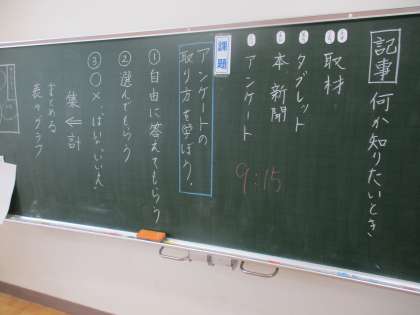 記事 何か知りたいとき、
取材
タブレット
本 新聞
アンケート
9:15
課題
アンケートの
取り方を学ぼう。
①自由に答えてもらう
②選んでもらう
③○×、はい、いいえ
集計
まとめる
表やグラフ